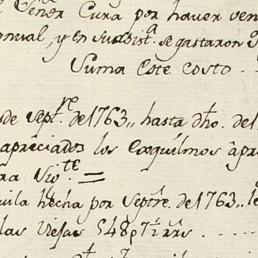 Señor Cura por haver ven
onval, y en su asist.ª se gastaron
Suma este costo
sde Sept.re de 1763,, hasta dho. de 1
apreciados los esquilmos à pre
ra Vis.te =
uila hecha por Septre. de 1763,, le
las Viejas 548p 7 1/2 rrs.